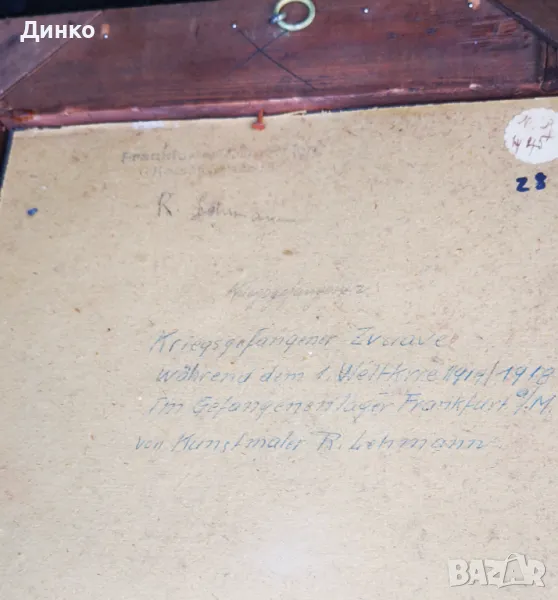 Динко
N. 2
28
R. Lehmann
Kriegsgefangener
Kriegsgefangener Zuave
während dem 1. Weltkrie 1914/1918
im Gefangenenlager Frankfurt a/M
von Kunstmaler R. Lehmann
BAZAR